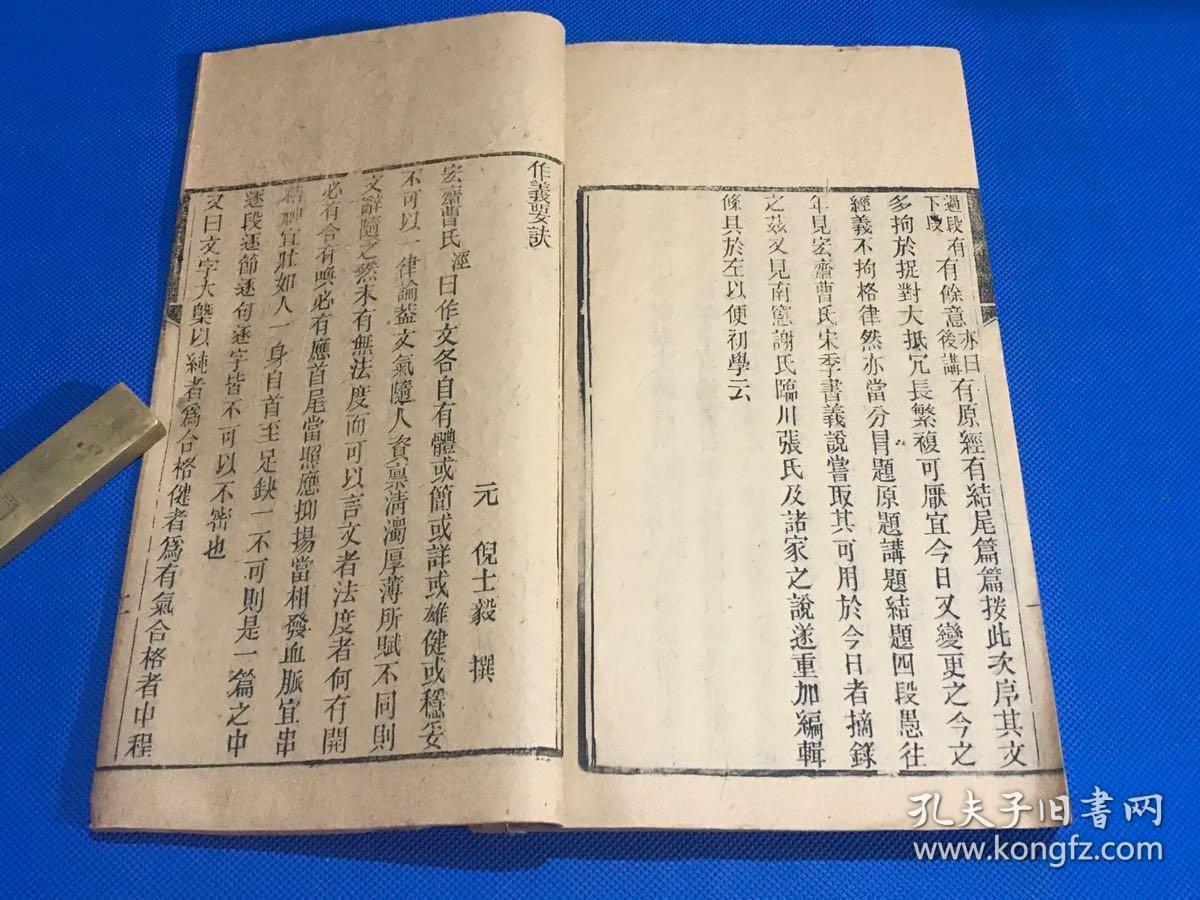 過段有下段有餘意亦曰後講有原經有結尾篇篇按此次序其文
多拘於捉對大抵冗長繁複可厭宜今日又變更之今之
經義不拘格律然亦當分冒題原題講題結題四段愚往
年見宏齋曹氏宋季書義說嘗取其可用於今日者摘錄
之茲又見南窻謝氏臨川張氏及諸家之說遂重加編輯
條具於左以便初學云
作義要訣
元 倪士毅 撰
宏齋曹氏涇曰作文各自有體或簡或詳或雄健或穩妥
不可以一律論蓋文氣隨人資稟清濁厚薄所賦不同則
文辭隨之然未有無法度而可以言文者法度者何有開
必有合有喚必有應首尾當照應抑揚當相發血脈宜串
精神宜壯如人一身自首至足缺一不可則是一篇之中
逐段逐節逐句逐字皆不可以不密也
又曰文字大槩以純者爲合格健者爲有氣合格者中程
孔夫子旧书网
www.kongfz.com